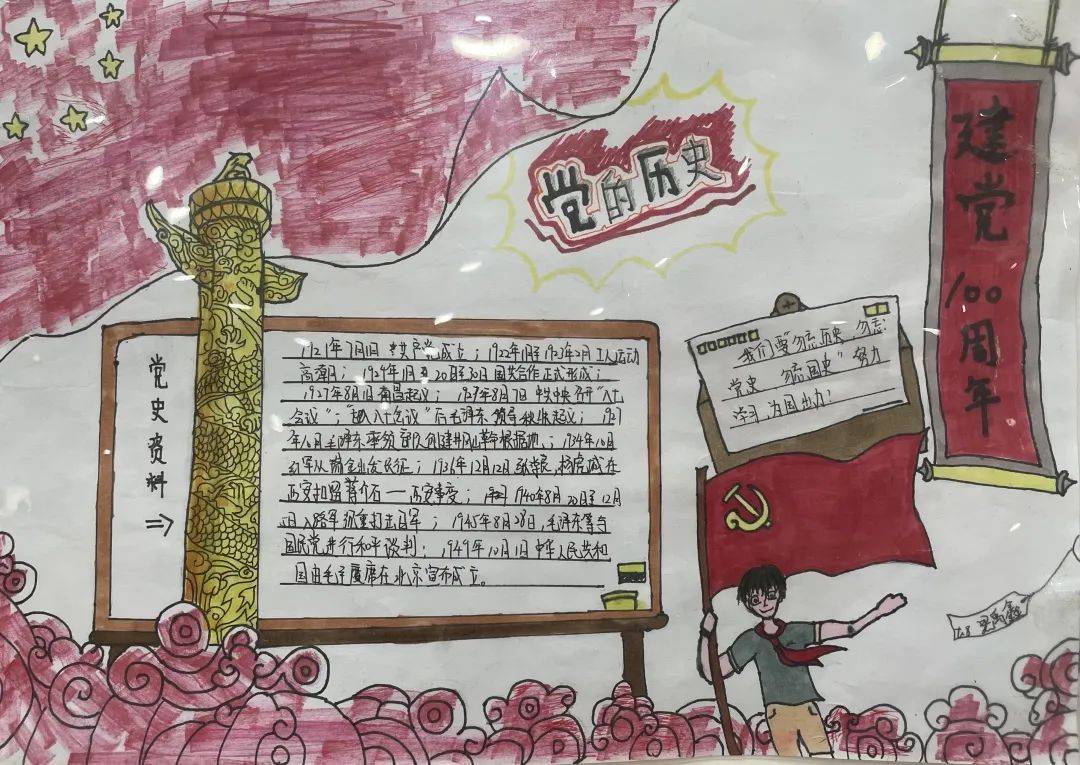 党的历史
建党100周年
党史资料
1921年7月1日 中共产党成立；1922年1月至1923年2月工人运动
高潮日；1924年1月至20日至30日国共合作正式形成；
1927年8月1日南昌起义；1927年8月7日中共中央召开“八七
会议”；“八七会议”后毛泽东领导秋收起义；1927
年10月毛泽东率领部队创建井冈山革命根据地；1934年10月
红军从瑞金出发长征；1936年12月12日张学良、杨虎城在
西安扣留蒋介石——西安事变；1940年8月20日至12月
5日八路军沉重打击日军；1945年8月28日，毛泽东等与
国民党进行和平谈判；1949年10月1日中华人民共和
国由毛主席在北京宣布成立。
我们要“勿忘历史 勿忘
党史 勿忘国史”努力
学习 为国出力！